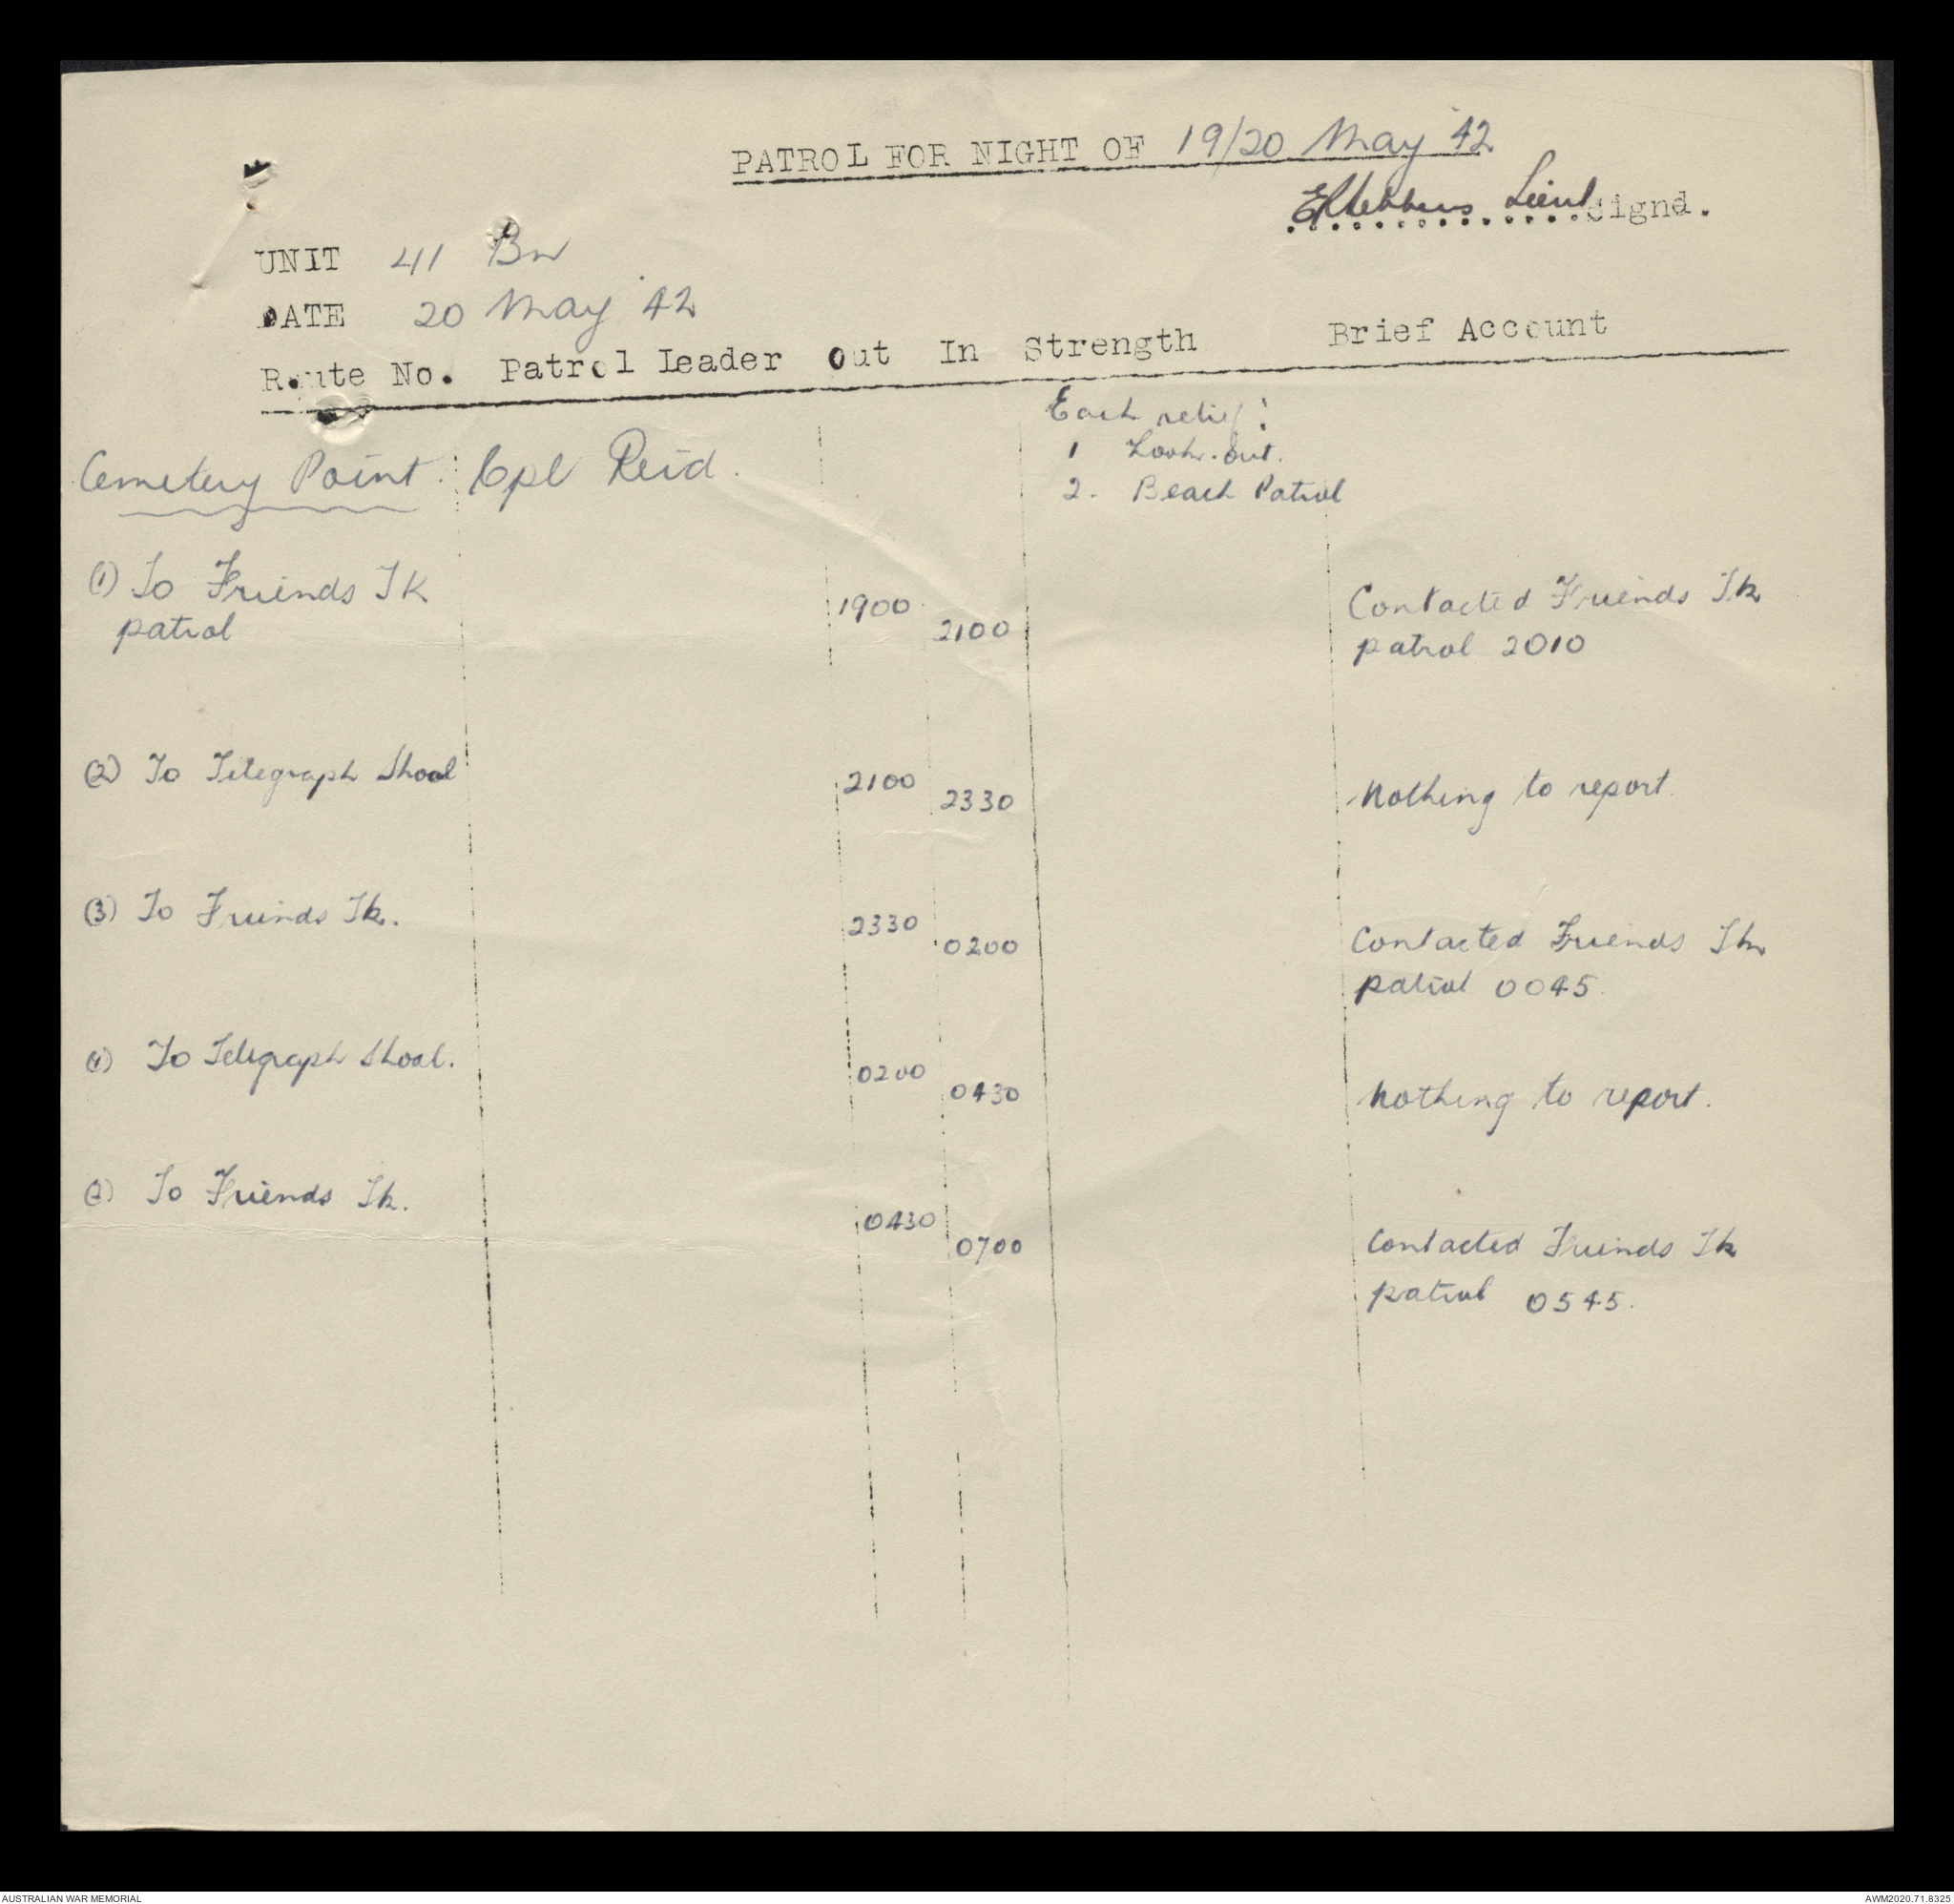 PATROL FOR NIGHT OF 19/20 May '42
Lieut Signd.
UNIT 41 Bn
DATE 20 May '42
Route No. Patrol Leader Out In Strength Brief Account
Each relief:
1 Look-out.
2. Beach Patrol
Cemetery Point: Cpl Reid.
(1) To Friends Tk
patrol
1900 2100
Contacted Friends Tk
patrol 2010
(2) To Telegraph Shoal 2100 2330 Nothing to report.
(3) To Friends Tk. 2330 0200 Contacted Friends Tk
patrol 0045.
(4) To Telegraph Shoal. 0200 0430 Nothing to report.
To Friends Tk. 0430 0700 Contacted Friends Tk
patrol 0545.
AUSTRALIAN WAR MEMORIAL AWM2020.71.8325